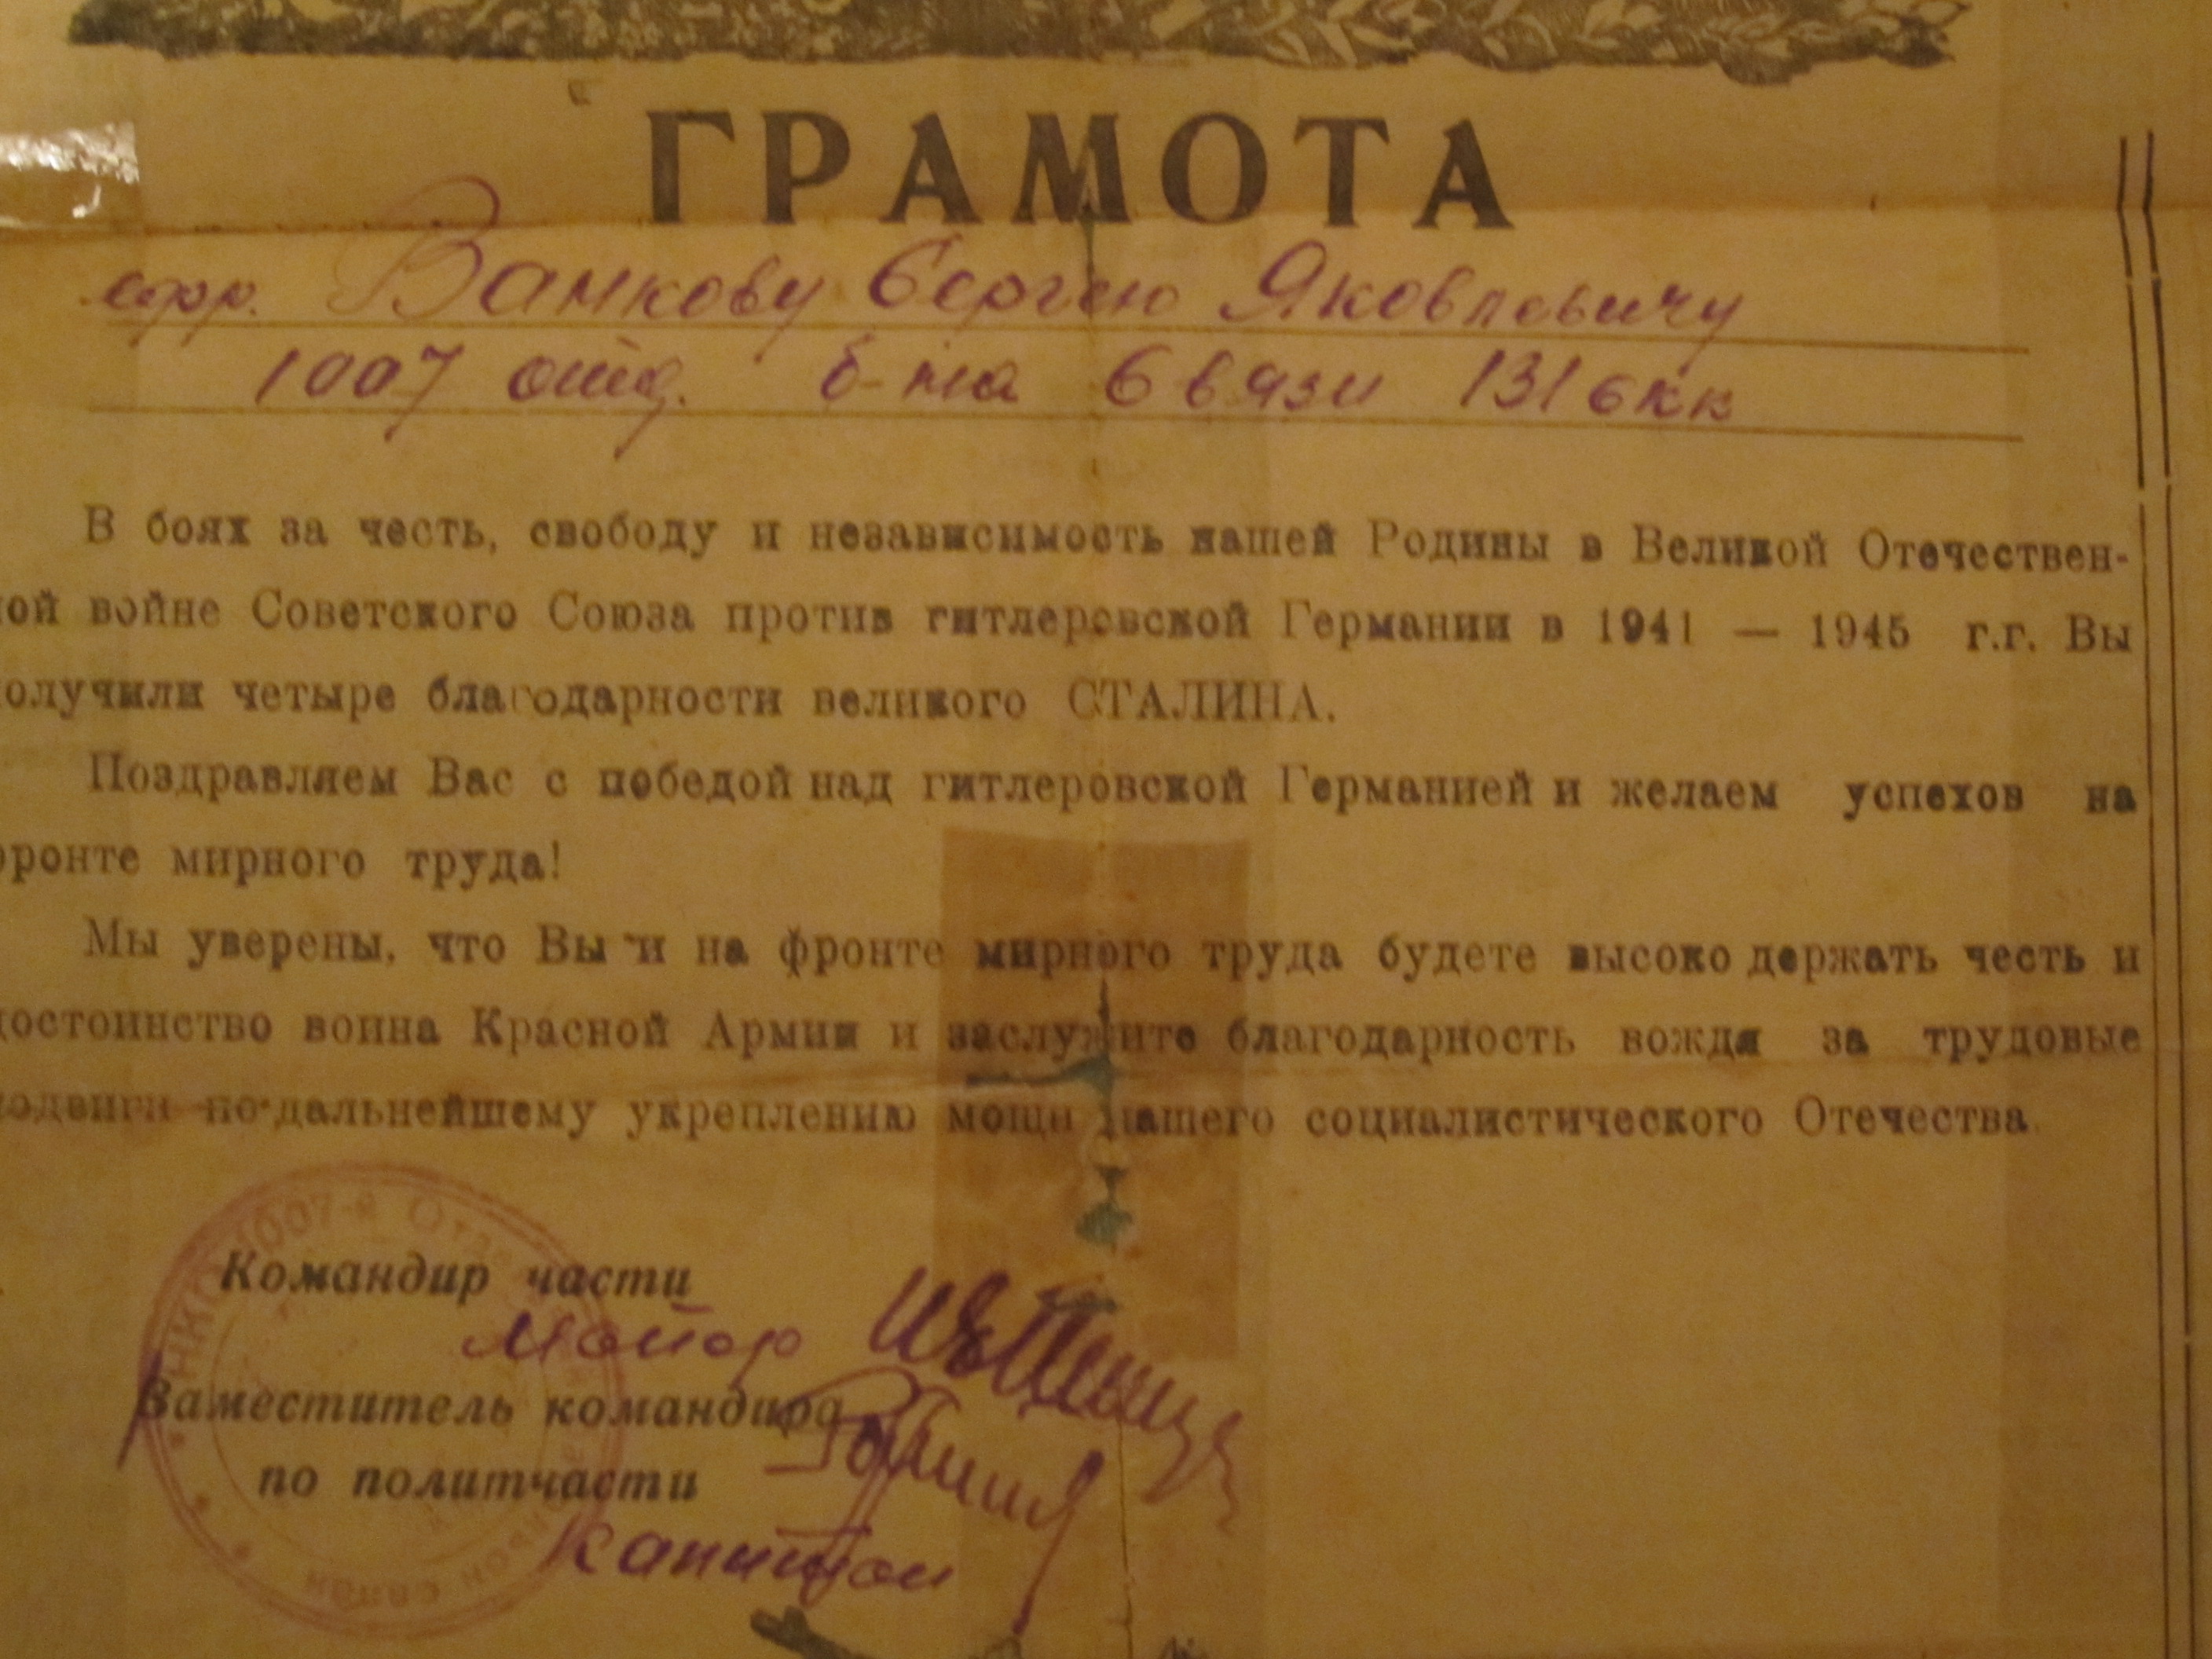 ГРАМОТА
ефр. Ванкову Сергею Яковлевичу
1007 отд. б-на связи 131 скк
В боях за честь, свободу и независимость нашей Родины в Великой Отечествен-
ной войне Советского Союза против гитлеровской Германии в 1941 — 1945 г.г. Вы
получили четыре благодарности великого СТАЛИНА.
Поздравляем Вас с победой над гитлеровской Германией и желаем успехов на
фронте мирного труда!
Мы уверены, что Вы и на фронте мирного труда будете высоко держать честь и
достоинство воина Красной Армии и заслужите благодарность вождя за трудовые
подвиги по дальнейшему укреплению мощи нашего социалистического Отечества.
1007-й
Командир части
Майор
Заместитель командира
по политчасти
Капитан